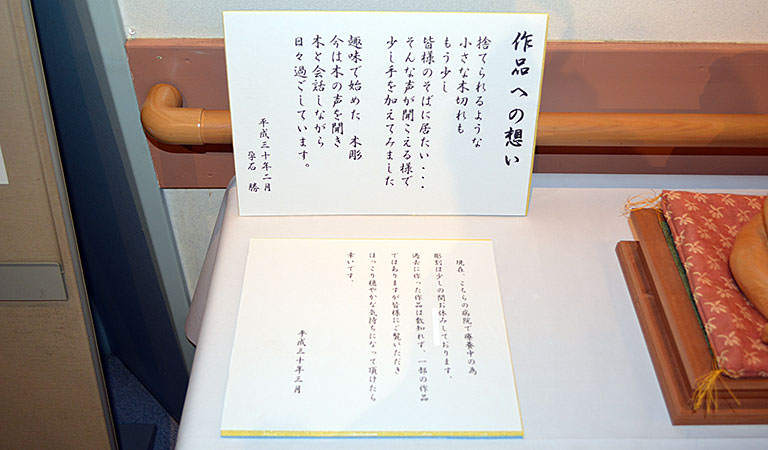 作品への想い
捨てられるような
小さな木切れも
もう少し
皆様のそばに居たい・・・
そんな声が聞こえる様で
少し手を加えてみました
趣味で始めた 木彫
今は木の声を聞き
木と会話しながら
日々過ごしています。
平成三十年二月
勝
現在、こちらの病院で療養中の為
彫刻は少しの間お休みしております。
過去に作った作品は数知れず、一部の作品
ではありますが皆様にご覧いただき
ほっこり穏やかな気持ちになって頂けたら
幸いです。
平成三十年三月